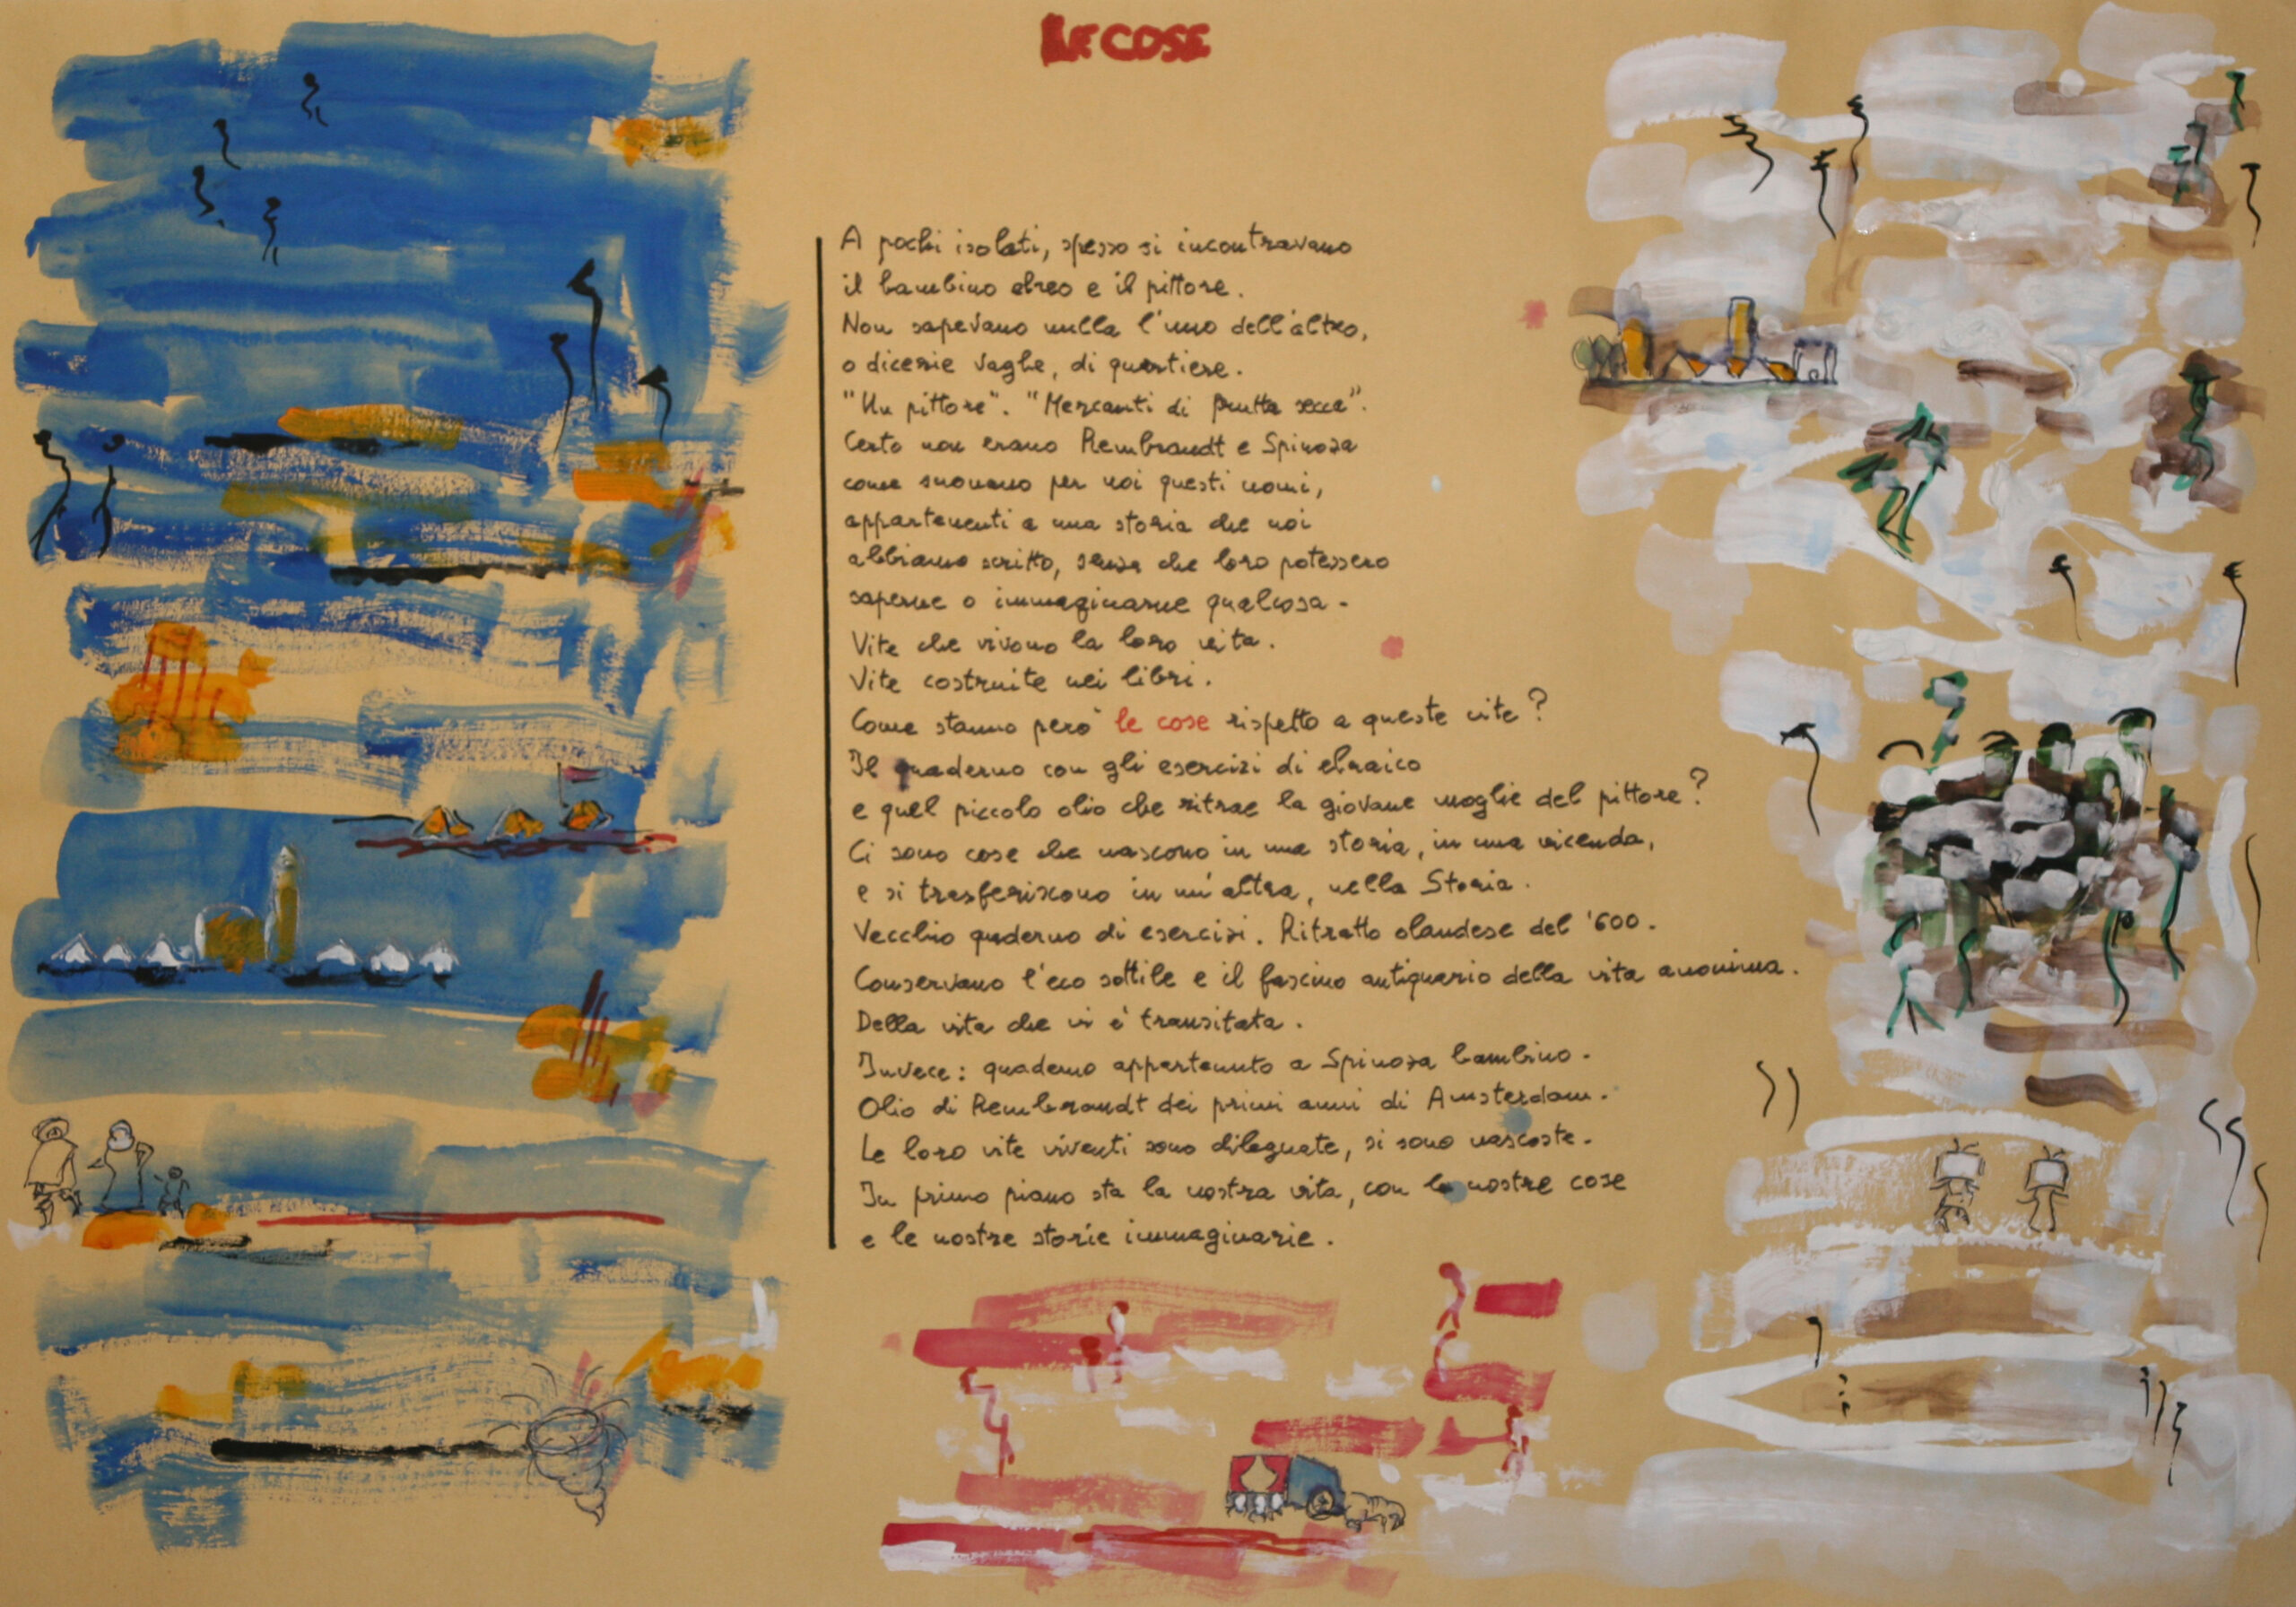 LE COSE
A pochi isolati, spesso si incontravano
il bambino ebreo e il pittore.
Non sapevano nulla l'uno dell'altro,
o dicerie vaghe, di quartiere.
"Un pittore". "Mercanti di frutta secca".
Certo non erano Rembrandt e Spinoza
come suonano per noi questi nomi,
appartenenti a una storia che noi
abbiamo scritto, senza che loro potessero
saperne o immaginarne qualcosa.
Vite che vivono la loro vita.
Vite costruite nei libri.
Come stanno però le cose rispetto a queste vite?
Il quaderno con gli esercizi di ebraico
e quel piccolo olio che ritrae la giovane moglie del pittore?
Ci sono cose che nascono in una storia, in una vicenda,
e si trasferiscono in un'altra, nella Storia.
Vecchio quderno di esercizi. Ritratto olandese del '600.
Conservano l'eco sottile e il fascino antiquario della vita anonima.
Della vita che vi è transitata.
Invece: quaderno appartenuto a Spinoza bambino.
Olio di Rembrandt dei primi anni di Amsterdam.
Le loro vite viventi sono dileguate, si sono nascoste.
In primo piano sta la nostra vita, con le nostre cose
e le nostre storie immaginarie.